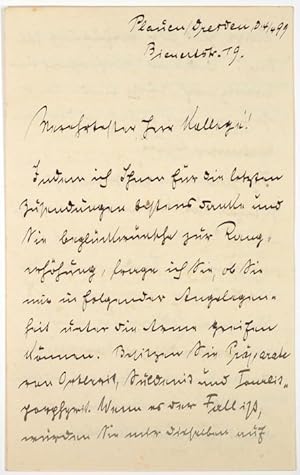 Plauen/Dresden, d. 4/4 99
Bienertstr. 19.
Wertester Herr Kollege!
Indem ich Ihnen für die letzten
Zusendungen bestens danke und
Sie beglückwünsche zur Rang-
erhöhung, frage ich Sie, ob Sie
mir in folgender Angelegen-
heit unter die Arme greifen
können. Besitzen Sie Präparate
von und
porphyrit. Wenn es der Fall ist,
würden Sie mir dieselben auf